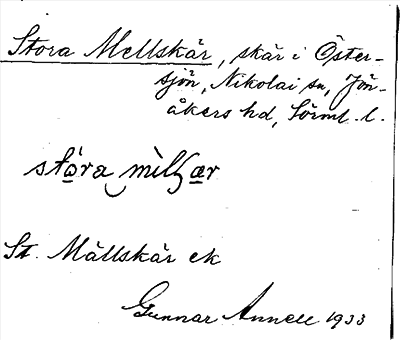 Stora Mellskär, skär i Öster-
sjön, Nikolai sn, Jön-
åkers hd, Sörml. l.
stóra
St. Mällskär ek
Gunnar Annell 1933